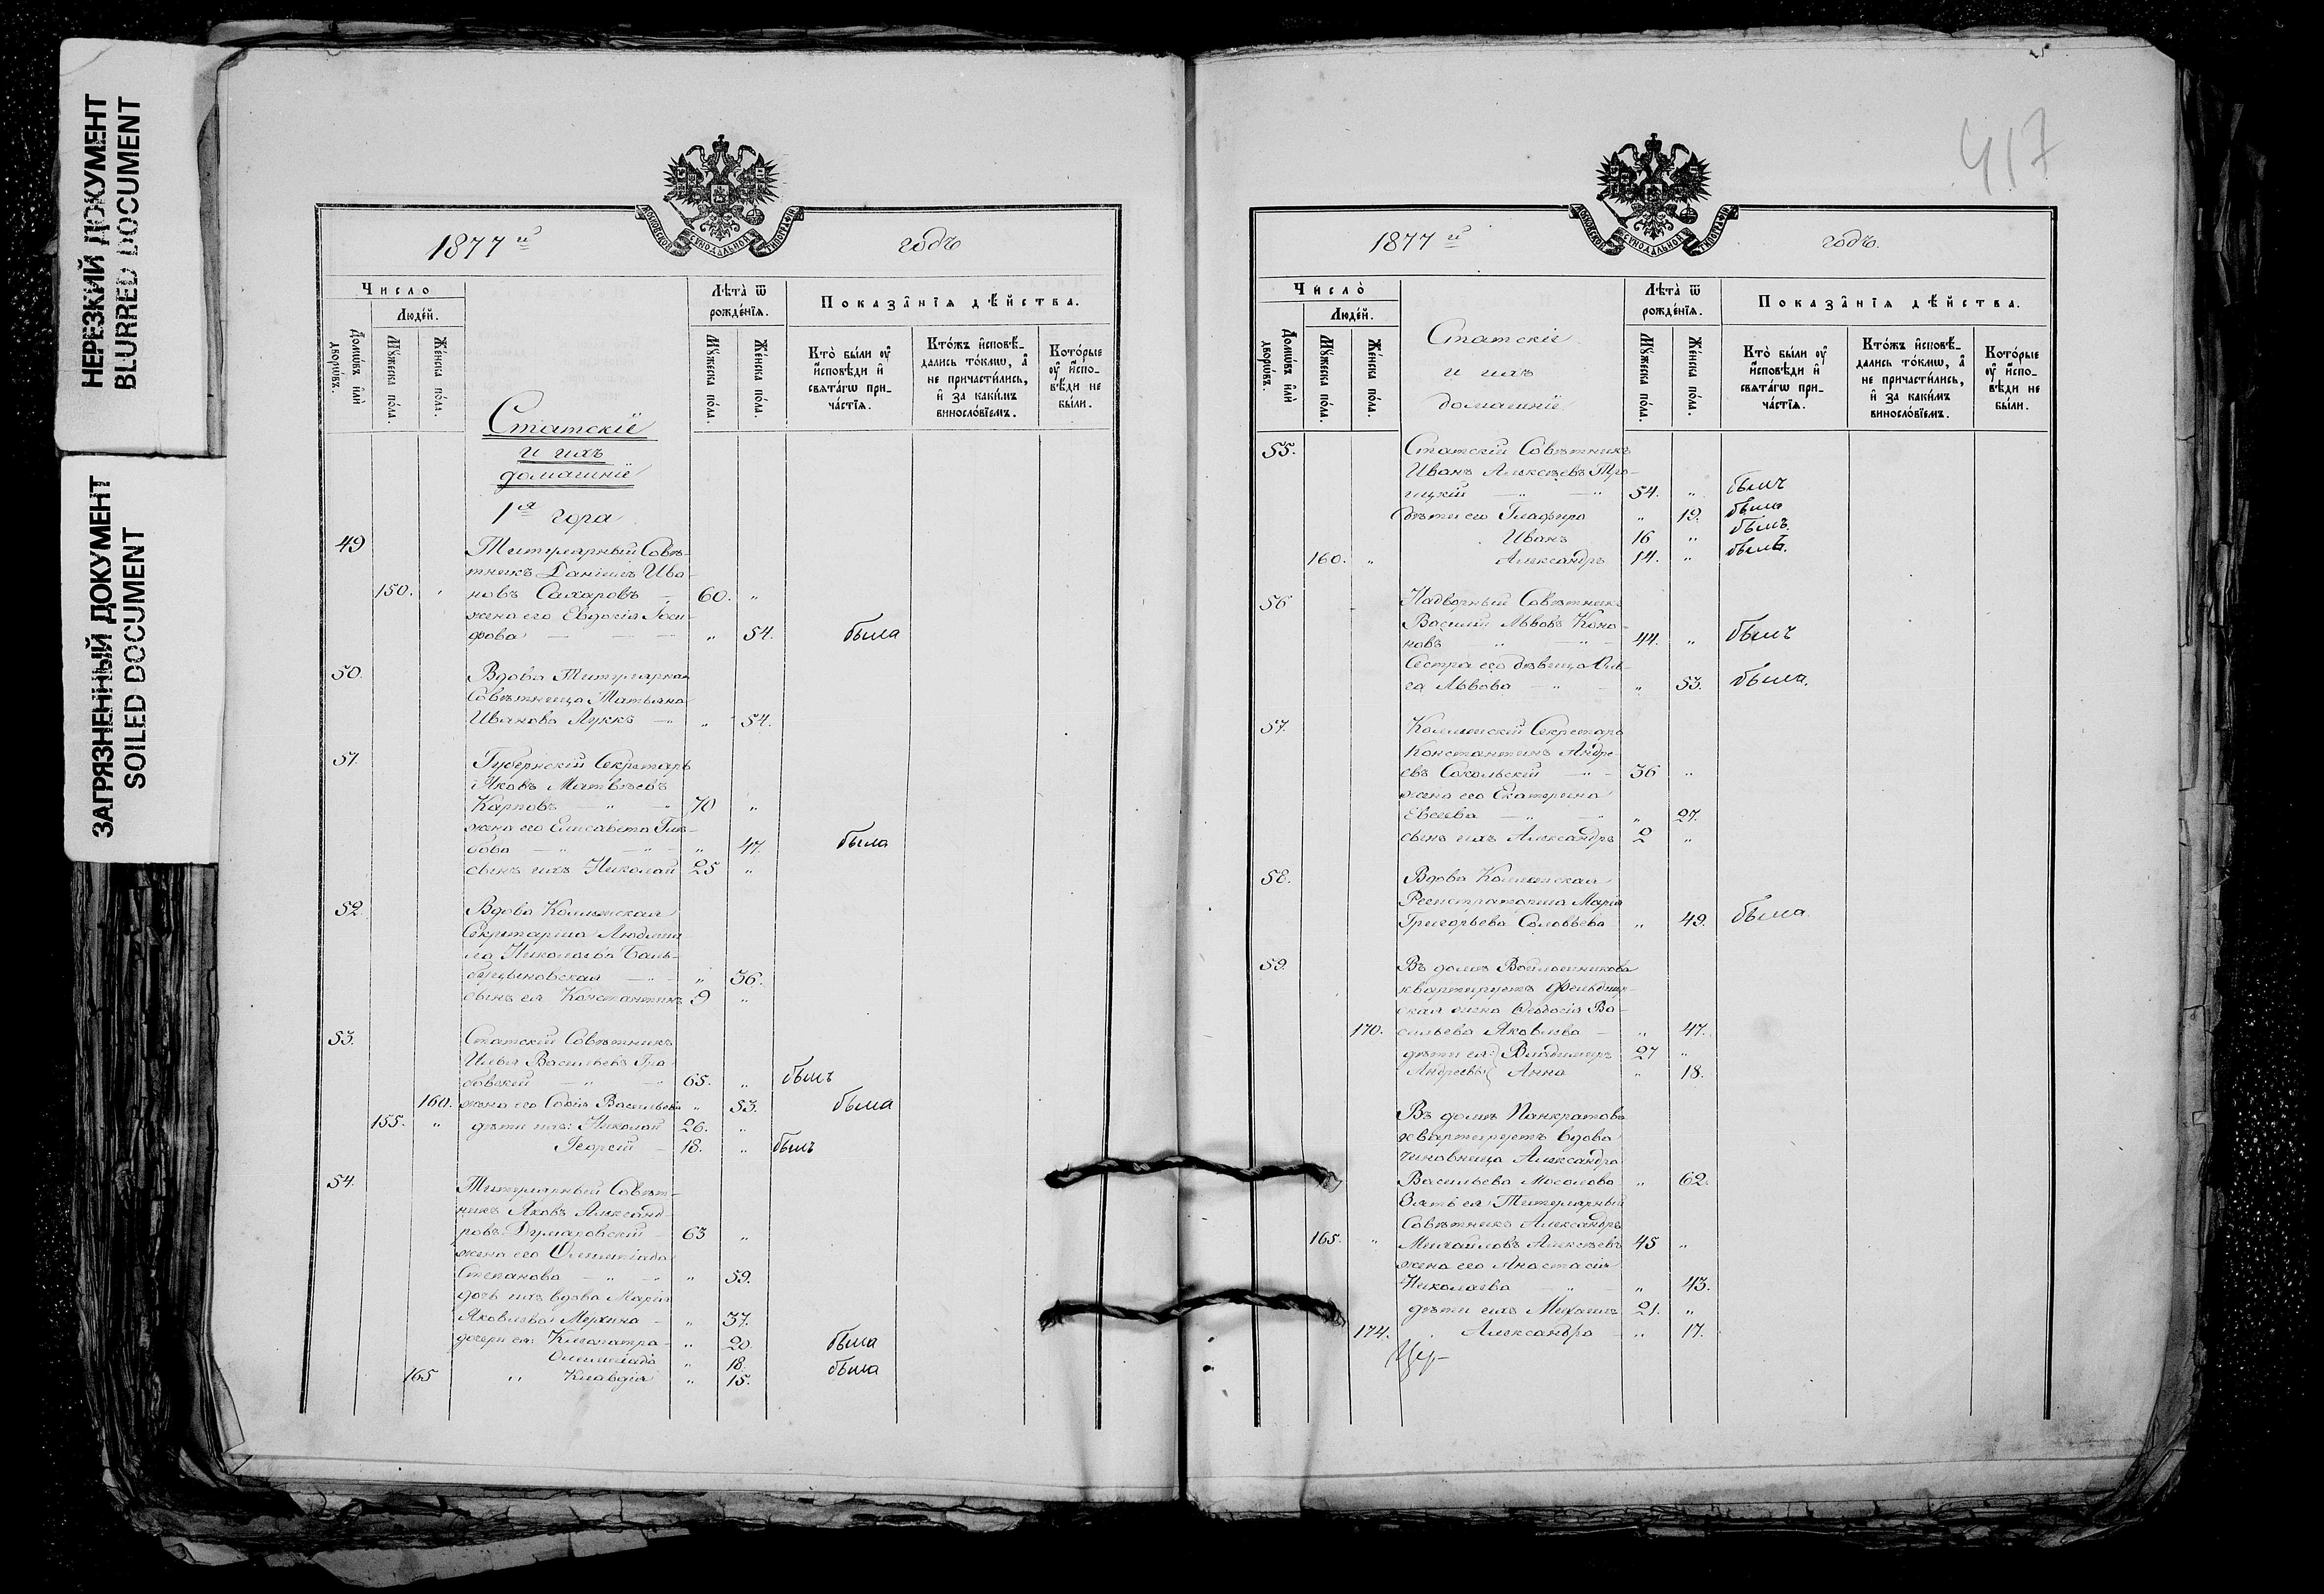 НЕРЕЗКИЙ ДОКУМЕНТ
BLURRED DOCUMENT
ЗАГРЯЗНЕННЫЙ ДОКУМЕНТ
SOILED DOCUMENT
МОСКОВСКОЙ СѴНОДАЛЬНОЙ ТИПОГРАФІИ
1877й годъ
Число
Людей.
Домѡвъ или дворѡвъ.
Мꙋжеска пола.
Женска пола.
Лѣта ѿ рожденїѧ.
Мꙋжеска пола.
Женска пола.
Показанїѧ дѣйства.
Кто были ѹ исповѣди и свѧтагѡ причастїѧ.
Ктожъ исповѣдались токмѡ, а не причастились, и за какимъ винословїемъ.
Которые ѹ исповѣди не были.
Статскіе
и ихъ
домашніе
1я гора
49 Титулярный Совѣ-
тникъ Даніилъ Ива-
150. " новъ Сахаровъ — 60. "
жена его Евдокія Іоси-
фова — " 54. была
50. Вдова Титулярная
Совѣтница Татьяна
Иванова Луккъ — " " 54.
51. Губернскій Секретарь
Яковъ Матвѣевъ
Карповъ " " 70 "
жена его Елисавета Глѣ-
бова — " " 47. была
сынъ ихъ Николай 25 "
52. Вдова Коллежская
Секретарша Людми-
ла Николаева
— " 36.
сынъ ея Константинъ 9 "
53. Статскій Совѣтникъ
Илья Васильевъ Гра-
бовскій — " " 65. " былъ
160. жена его Софія Васильева " 53. была
155. " дѣти ихъ: Николай 26. "
Георгій — 18. " былъ
54. Титулярный Совѣт-
никъ Яковъ Александ-
ровъ Думаровскій — 63 "
жена его Олимпіада
Степанова — " " " 59.
дочь ихъ вдова Марія
Яковлева Мерхина — " 37.
дочери ея: Клеопатра — " 20. была
Олимпіада " 18. была
165 " Клавдія " 15.
417
1877й годъ.
Число
Людей.
Домѡвъ или дворѡвъ.
Мꙋжеска пола.
Женска пола.
Статскіе
и ихъ
домашніе
Лѣта ѿ рожденїѧ.
Мꙋжеска пола.
Женска пола.
Показанїѧ дѣйства.
Кто были ѹ исповѣди и свѧтагѡ причастїѧ.
Ктожъ исповѣдались токмѡ, а не причастились, и за какимъ винословїемъ.
Которые ѹ исповѣди не были.
55. Статскій Совѣтникъ
Иванъ Алексѣевъ Тро-
ицкій — " — " 54. " былъ
дѣти его Глафира " 19. была
Иванъ 16 " былъ.
160. " Александръ 14. " былъ.
56 Надворный Совѣтникъ
Василій Львовъ Коно-
новъ " " 44. " былъ
Сестра его дѣвица Оль-
га Львова — " — " 53. была.
57. Коллежскій Секретарь
Константинъ Андре-
евъ Сокольскій — " 36 "
жена его Екатерина
Евсеева — " " " 27.
сынъ ихъ Александръ 2 "
58. Вдова Коллежская
Регистраторша Марія
Григорьева Соловьева " 49. была.
59. Въ домѣ Войлошникова
квартируетъ Фельдшер-
ская жена Ѳеодосія Ва-
170. сильева Яковлева — " 47.
дѣти ея: Владимиръ 27 "
Андреевы Анна " 18.
Въ домѣ Панкратова
квартируетъ вдова
чиновница Александра
Васильева Мосолова " 62.
Зять ея Титулярный
Совѣтникъ Александръ
165. " Михайловъ Алексѣевъ 45 "
жена его Анастасія
Николаева — " — " 43.
дѣти ихъ Михаилъ 21. "
174. " Александра — " 17.